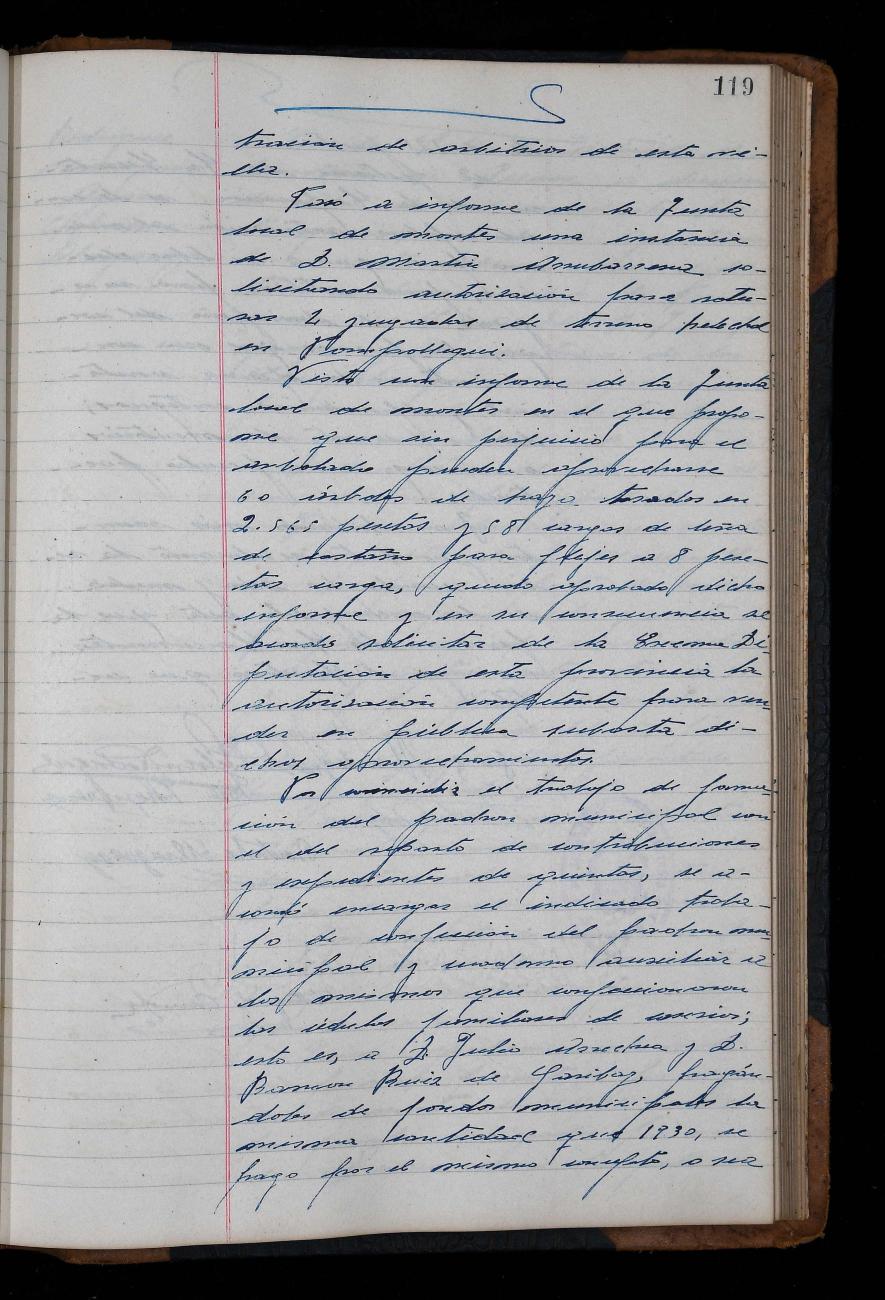 119
tración de arbitrios de esta vi-
lla.
Pasó a informe de la Junta
local de montes una instancia
de D. Martin Anubarrena so-
licitando autorización para rotu-
rar 2 yugadas de terreno helechal
en
Visto un informe de la Junta
local de montes en el que propo-
ne que sin perjuicio para el
arbolado pueden aprovecharse
60 árboles de haya tasados en
2.565 pesetas y 58 cargas de leña
de castaño para flejes a 8 pese-
tas carga, quedo aprobado dicho
informe y en su consecuencia se
acordó solicitar de la Excma Di-
putación de esta provincia la
autorización competente para ven-
der en pública subasta di-
chos aprovechamientos.
Por coincidir el trabajo de forma-
ción del padron municipal con
el del reparto de contribuciones
y expedientes de quintas, se a-
cordó encargar el indicado traba-
jo de confección del padron mu-
nicipal y cuaderno auxiliar a
los mismos que confeccionaron
las cédulas familiares de
esto es, a D. Julio Arrechea y D.
Ramon Ruiz de Garibay, pagán-
doles de fondos municipales la
misma cantidad que 1930, se
pago por el mismo concepto, o sea